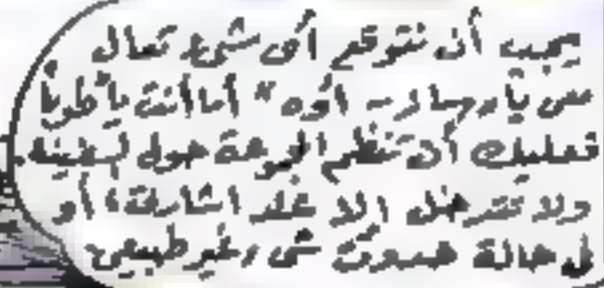 يجب أن نتوقع أى شىء تعال
أما أنت يا
فعليك أن تنظم المجموعة حول السفينة
ولا تتدخل الا عند اشارتى، أو
فى حالة حدوث شىء غير طبيعى